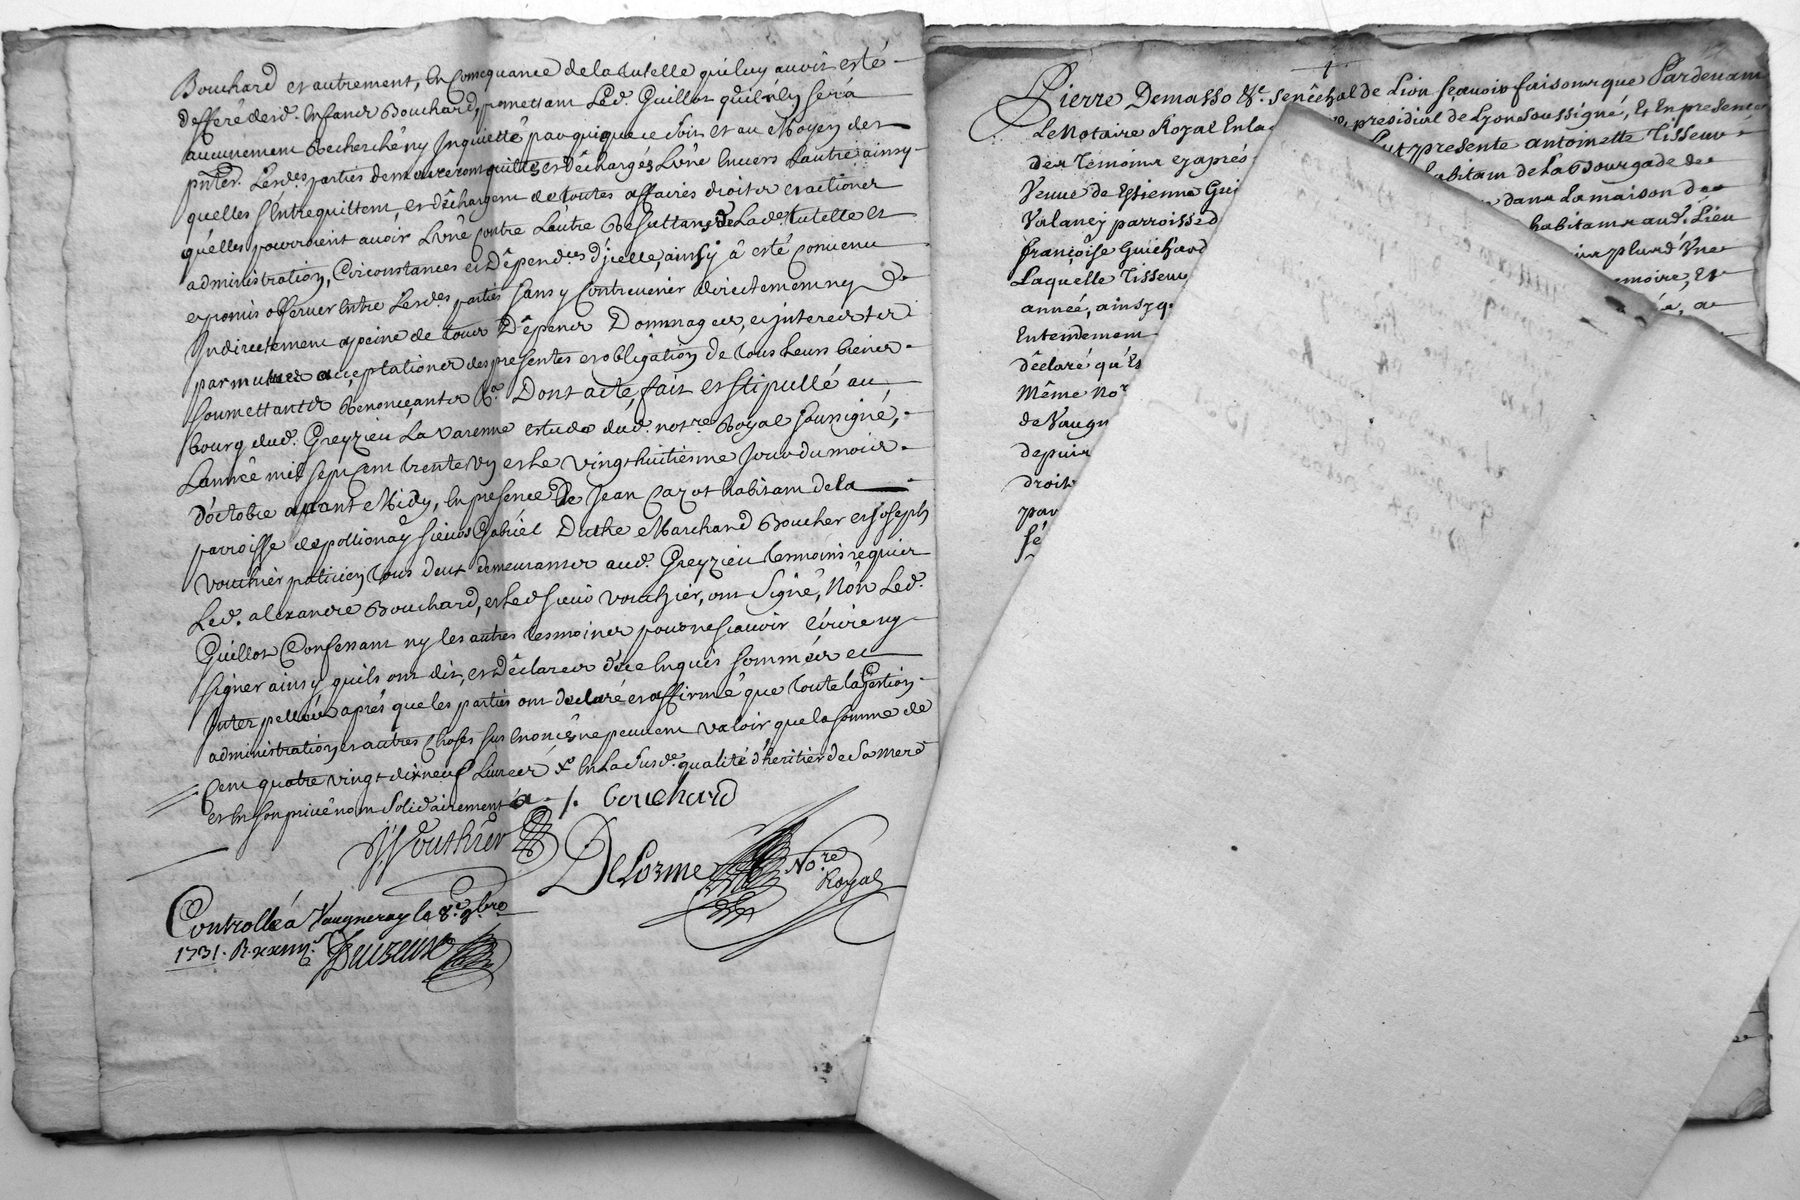 Bouchard et autrement, En Consequance de la tutelle qui luy avoit esté
defferé desd. Enfants Bouchard, promettant Led. Guillot qu'il n'en sera
aucunement Recherché ny Inquietté pour quique ce soit et au Moyen des
pntes. Lesdes. parties demeureront quittes et déchargés L'une Envers L'autre ainsy
quelles s'Entrequittent, et déchargent de toutes affaires droits et actions
qu'elles pourroient avoir L'une Contre L'autre Resultans de Lade. tutelle et
administration, Circonstances et Dépendces. d'jcelle, ainsy â esté Convenu
et promis observer Entre Lesdes. parties sans y Contrevenir directement ny
Indirectement a peine de tous Dépens Dommages, et jnterests
par mutuees acceptations des presentes et obligation de tous Leurs biens
soumettants Renonceants &a. Dont acte, fait et stipullé au
bourg dud. Greyzieu La Varenne estude dud. notre. Royal soussigné,
L'année mil sept cent trente un et Le vingt huitiesme Jour du mois
d'octobre avant Midy, En presence de Jean Cazot habitant de la
parroisse de pollionay sieurs Gabriel Duthe Marchand Boucher et Joseph
Vouthier praticien tous deux demeurants aud. Greyzieu tesmoins requis
Led. alexandre Bouchard, et Led sieur Vouthier, ont signé, Nón Led.
Guillot Confessant ny les autres tesmoins pour ne scavoir écrire ny
signer ainsy qu'ils ont dit, et Déclaré de ce Enquis sommés et
Interpellés aprés que les parties ont declaré et affirmé que toute la Gestion
administration et autres Choses sus Enoncés ne peuvent valoir que la somme de
Cent quatre vingt dix neuf Livres x En La susde. qualité d'heritier de sa mere
et En son privé nom solidairement a ./. bouchard
J Vouthier
DeLorme Nore. Royal
Controllé a Vaugneray le 8e. 9bre
1731. R. xxiiijs.
Pierre Demasso &c. senêchal de Lion sçavoir faisons que Pardevant
Le Notaire Royal En la presidial de Lyon soussigné, Et En presence
des temoins cy aprés fut presente antoinette Tisseur
Veuve de Estienne Gui habitant de La Bourgade de
Valancy parroisse d dans La maison de
françoise Guichard habitant aud. Lieu
Laquelle Tisseur plus d'Une
année, ainsy q memoire, Et
Entendement
déclaré qu'Es
Même Nor
de Vaugn
depuis
droit
par
sé